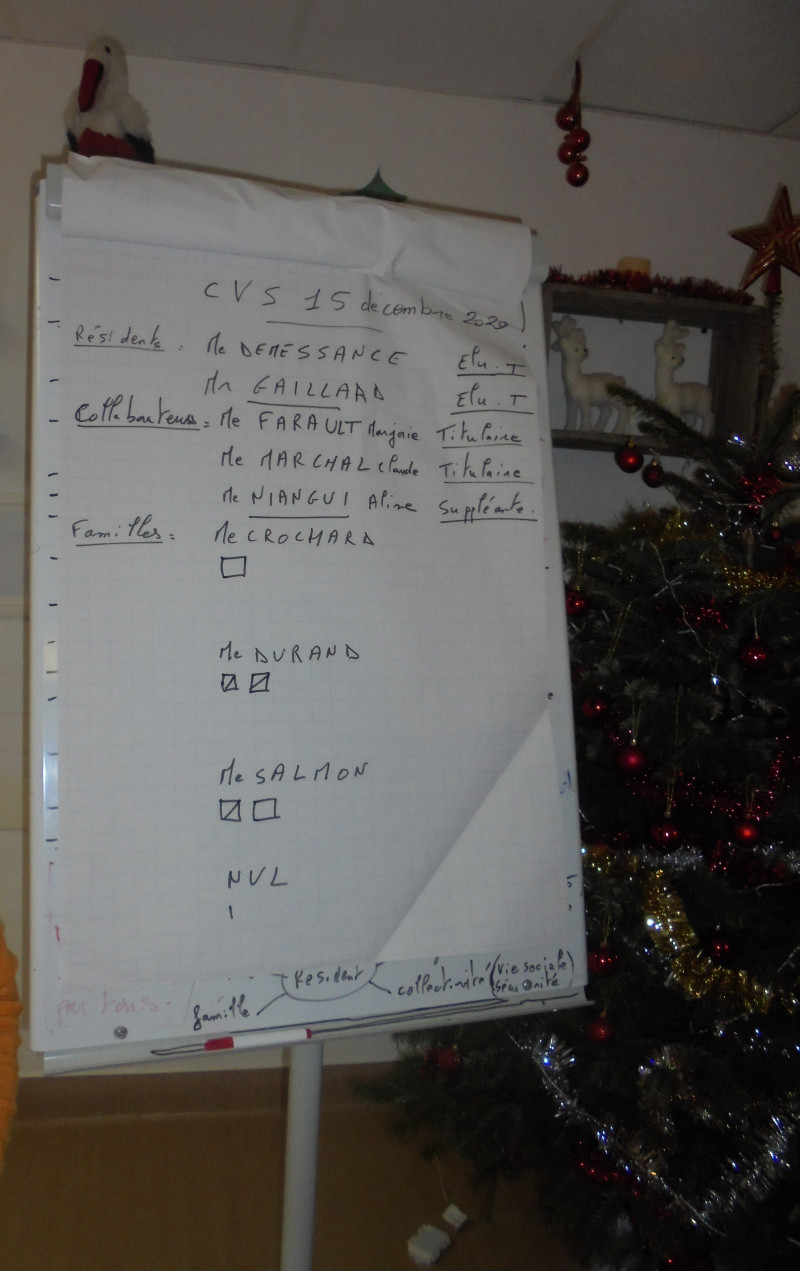 CVS 15 décembre 2020
Résidents : Me DEMESSANCE Elu. T
Mr GAILLARD Elu. T
Collaborateurs = Me FARAULT Marjorie Titulaire
Me MARCHAL Claude Titulaire
Me NIANGUI Aline Suppléante.
Familles = Me CROCHARD
Me DURAND
Me SALMON
NVL
Résident
famille
collectivité (vie sociale)